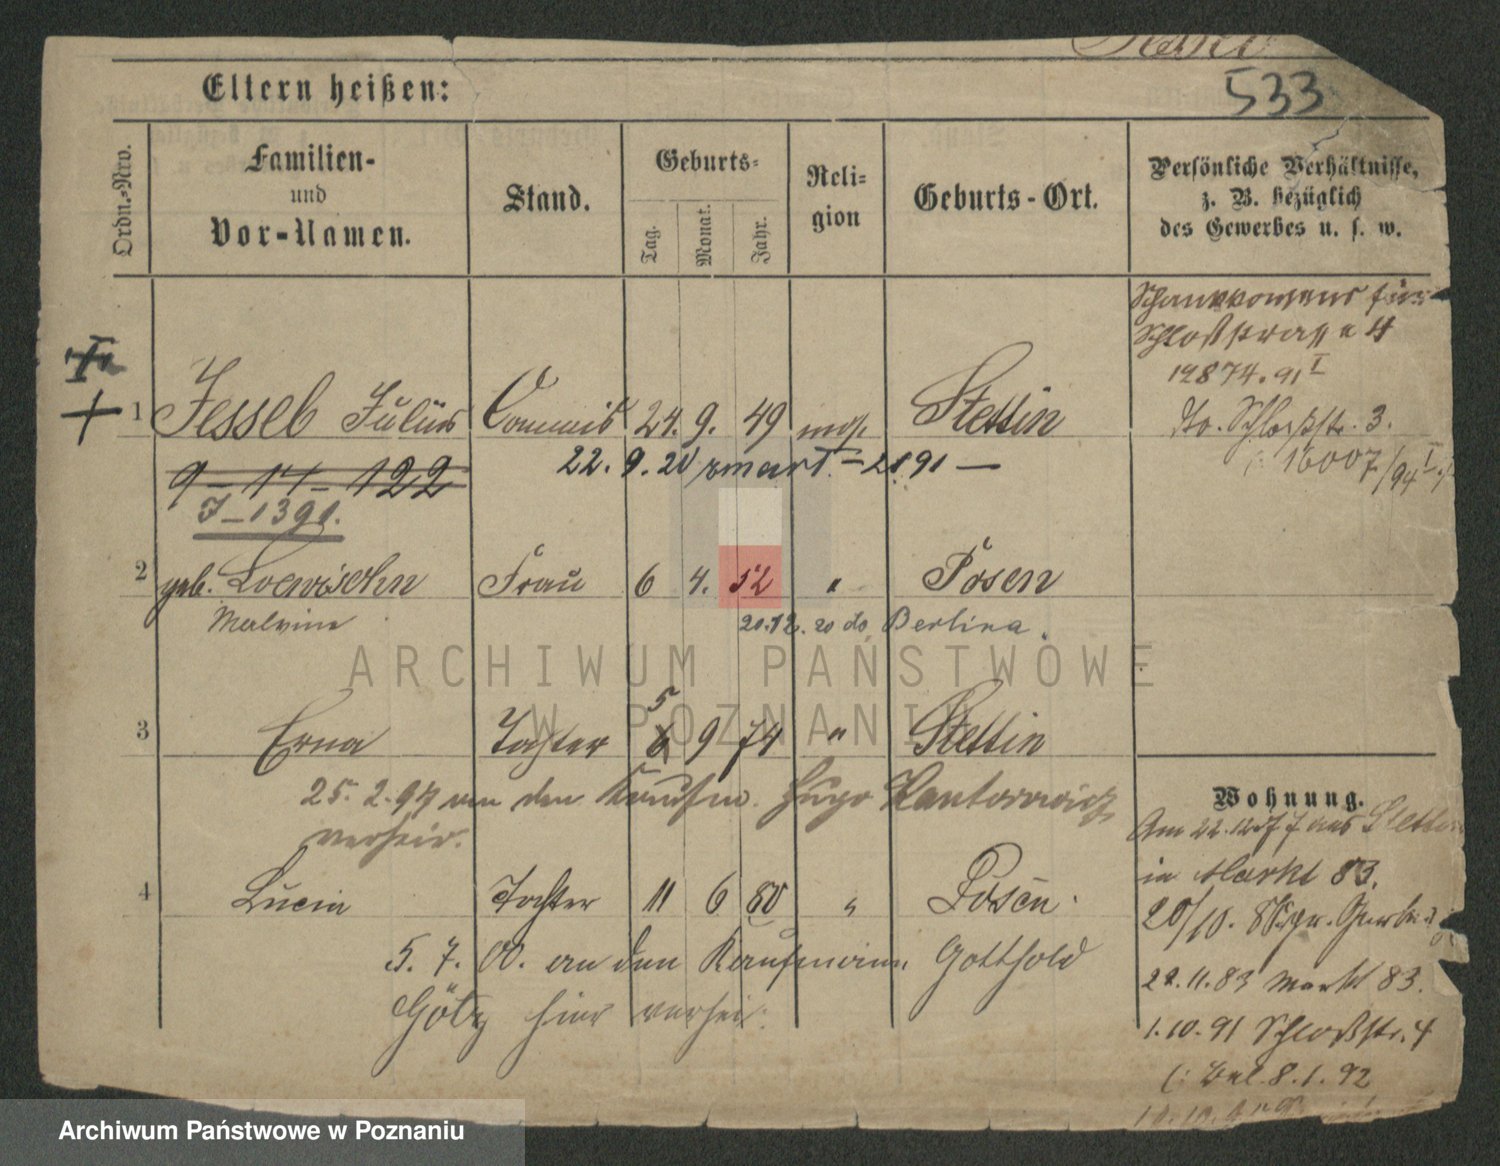 533
Eltern heißen:
Ordn.-Nro.
Familien-
und
Vor-Namen.
Stand.
Geburts-
Tag.
Monat.
Jahr.
Reli-
gion
Geburts-Ort.
Persönliche Verhältnisse,
z. B. bezüglich
des Gewerbes u. s. w.
Schloßstrasse 4
12874.91 I
do. Schloßstr. 3.
16007/94 I
1 Jessel Julius Commis 24. 9. 49 mos. Stettin
9-14-122
22. 9. 20 — 2191 —
J-1391.
2 geb. Loewisohn Frau 6 4. 52 " Posen
Malvine
20.12.20 do Berlin
ARCHIWUM PAŃSTWOWE
W POZNANIU
3 Erna Tochter 5 6 9 74 " Stettin
25. 2. 94 an den Kaufm. Hugo Kantorowicz
verheir.
4 Lucia Tochter 11 6 80 " Posen.
5. 7. 00. an den Kaufmann Gotthold
Götz hier verheir.
Wohnung.
Am 22.12.77 aus Stettin
in Markt 83.
20/10.
22.11.83 Markt 83.
1.10.91 Schloßstr. 4
8.1.92
Archiwum Państwowe w Poznaniu